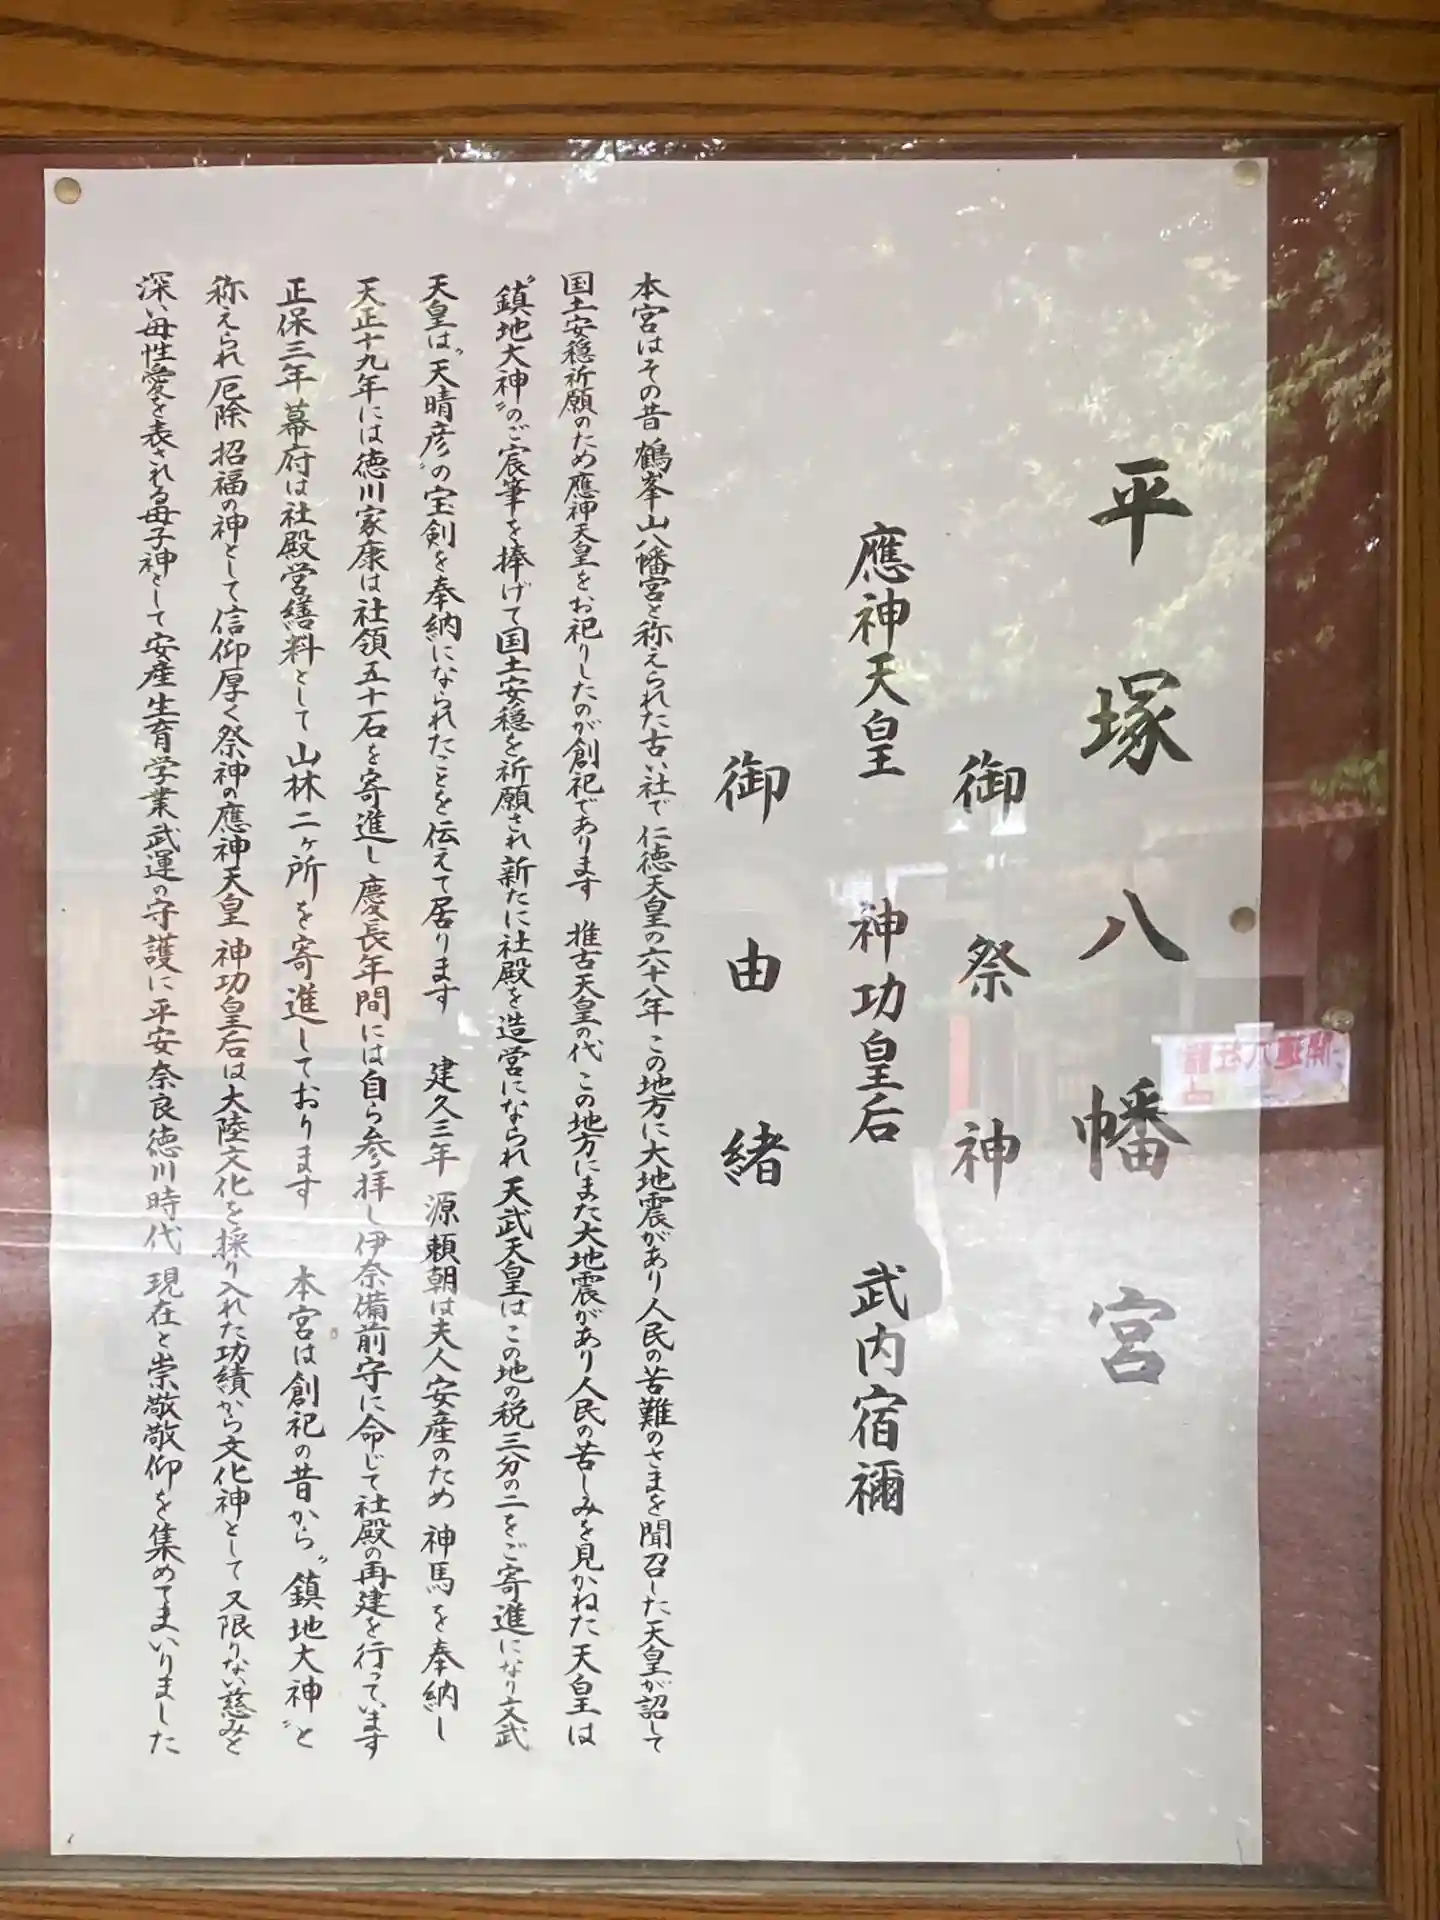 平塚八幡宮
御祭神
應神天皇 神功皇后 武内宿禰
御由緒
本宮はその昔 鶴峯山八幡宮と称えられた古い社で 仁徳天皇の六十八年 この地方に大地震があり人民の苦難のさまを聞召した天皇が詔して
国土安穏祈願のため應神天皇をお祀りしたのが創祀であります 推古天皇の代 この地方にまた大地震があり人民の苦しみを見かねた天皇は
〝鎮地大神〟のご宸筆を捧げて国土安穏を祈願され新たに社殿を造営になられ 天武天皇はこの地の税三分の二をご寄進になり文武
天皇は〝天晴彦〟の宝剣を奉納になられたことを伝えて居ります 建久三年 源頼朝は夫人安産のため 神馬を奉納し
天正十九年には徳川家康は社領五十石を寄進し慶長年間には自ら参拝し伊奈備前守に命じて社殿の再建を行っています
正保三年 幕府は社殿営繕料として山林二ヶ所を寄進しております 本宮は創祀の昔から〝鎮地大神〟と
称えられ厄除 招福の神として信仰厚く祭神の應神天皇 神功皇后は大陸文化を採り入れた功績から文化神として又限りない慈みと
深い母性愛を表される母子神として安産生育学業武運の守護に平安奈良徳川時代 現在と崇敬敬仰を集めてまいりました